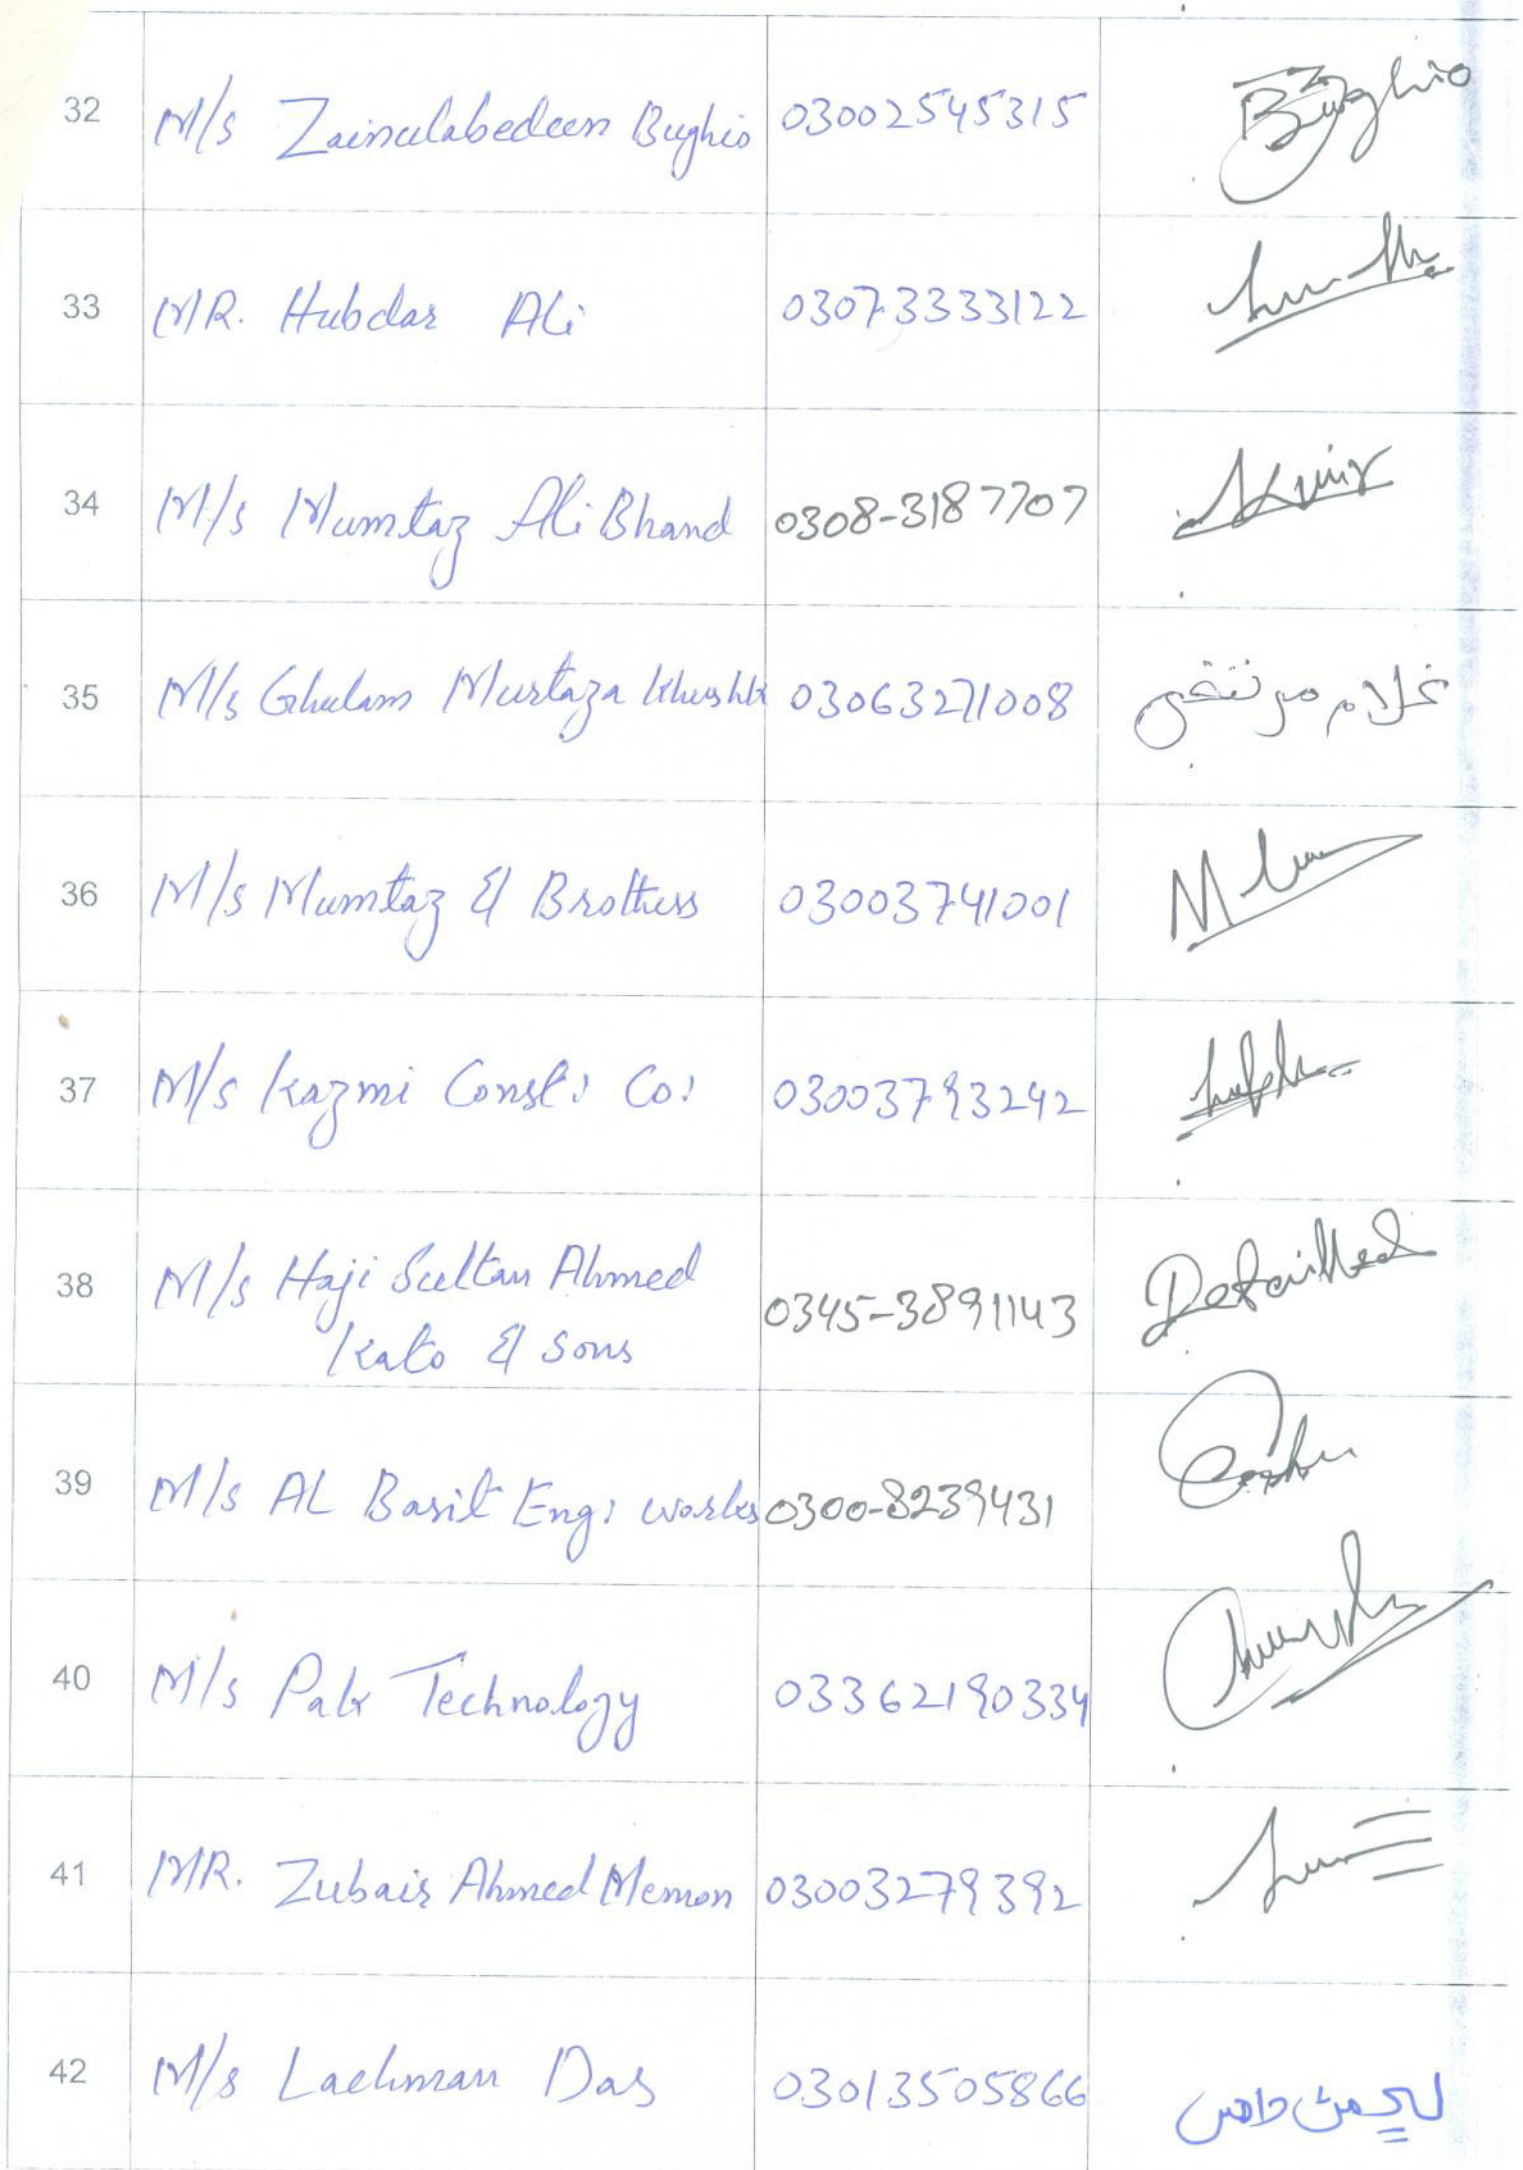 32 M/s Zainulabedeen Bughio 03002545315 Bughio
33 MR. Hubdar Ali 03073333122
34 M/s Mumtaz Ali Bhand 0308-3187707
35 M/s Ghulam Murtaza Khushk 03063271008 غلام مرتضیٰ
36 M/s Mumtaz & Brothers 03003741001
37 M/s Kazmi Const: Co: 03003793242
38 M/s Haji Sultan Ahmed
Kato & Sons 0345-3891143
39 M/s AL Basit Eng: works 0300-8239431
40 M/s Pak Technology 03362190334
41 MR. Zubair Ahmed Memon 03003279392
42 M/s Lachman Das 03013505866